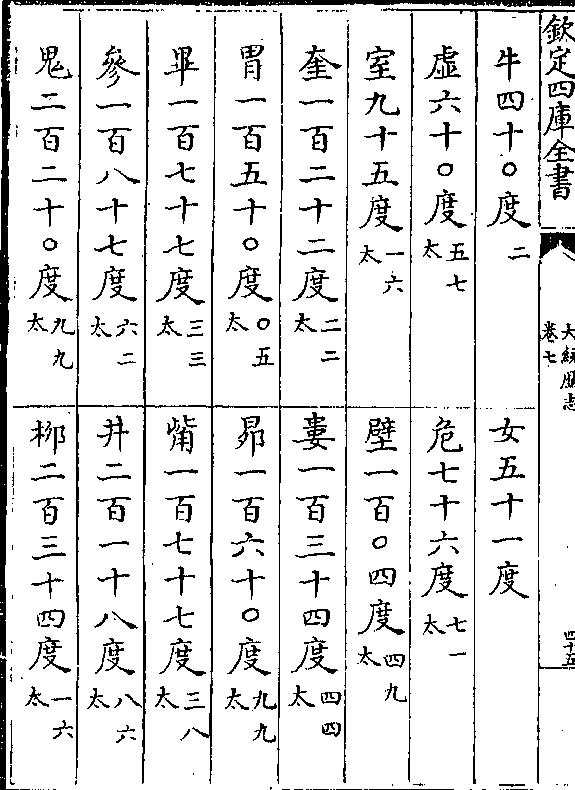 欽定四庫全書
大統厯志
卷七
四十五
牛四十〇度二 女五十一度
虛六十〇度五七太 危七十六度七一太
室九十五度一六太 壁一百〇四度四九太
奎一百二十二度二二太 婁一百三十四度四四太
胃一百五十〇度〇五太 昴一百六十〇度九九太
畢一百七十七度三三太 觜一百七十七度三八太
參一百八十七度六二太 井二百一十八度八六太
鬼二百二十〇度九九太 柳二百三十四度一六太